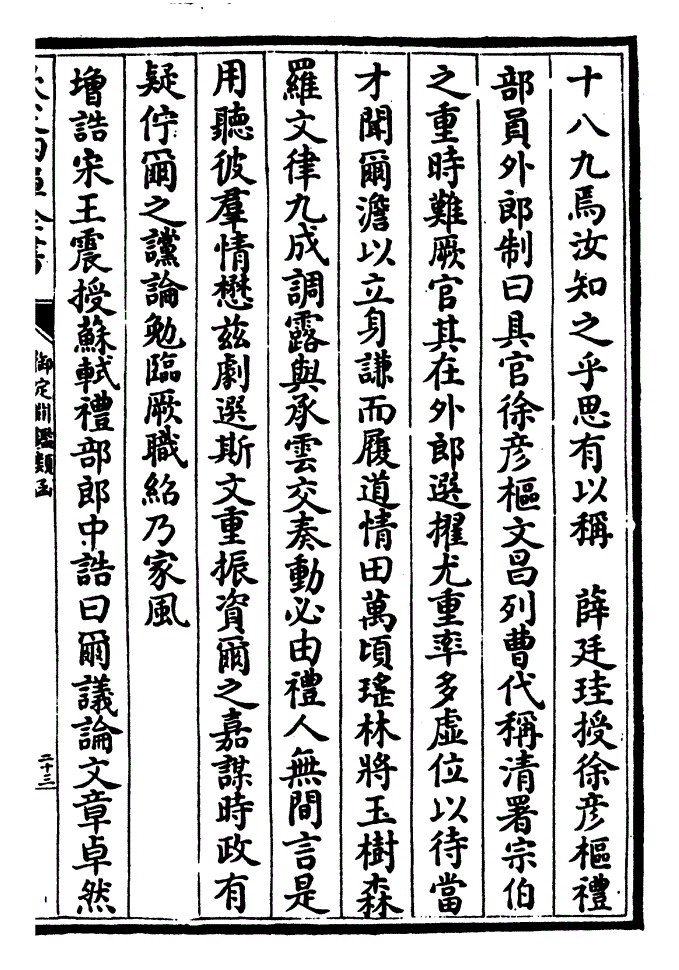 十八九焉汝知之乎思有以稱　薛廷珪授徐彦樞禮
部員外郎制曰具官徐彦樞文昌列曹代稱清署宗伯
之重時難厥官其在外郎選擢尤重率多虚位以待當
才聞爾澹以立身謙而履道情田萬頃瑤林將玉樹森
羅文律九成調露與承雲交奏動必由禮人無間言是
用聽彼羣情懋兹劇選斯文重振資爾之嘉謀時政有
疑佇爾之讜論勉臨厥職紹乃家風
增誥宋王震授蘇軾禮部郎中誥曰爾議論文章卓然
御定淵鑑類函
二十三